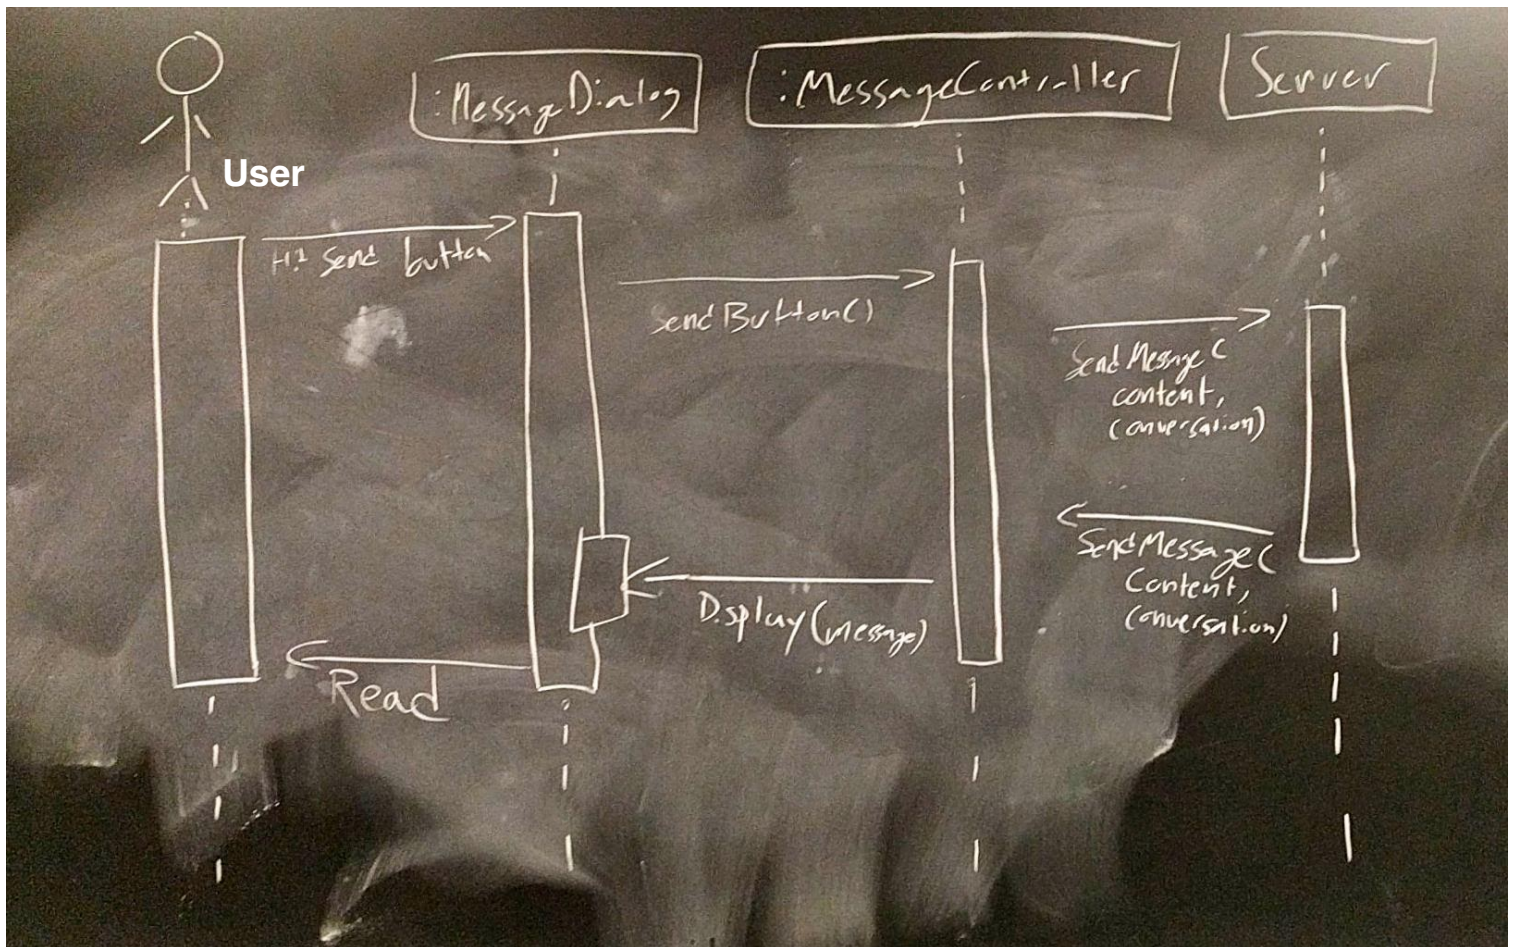 :MessageDialog
:MessageController
Server
User
Hit Send button
SendButton()
SendMessage(
content,
conversation)
SendMessage(
Content,
conversation)
Display(message)
Read